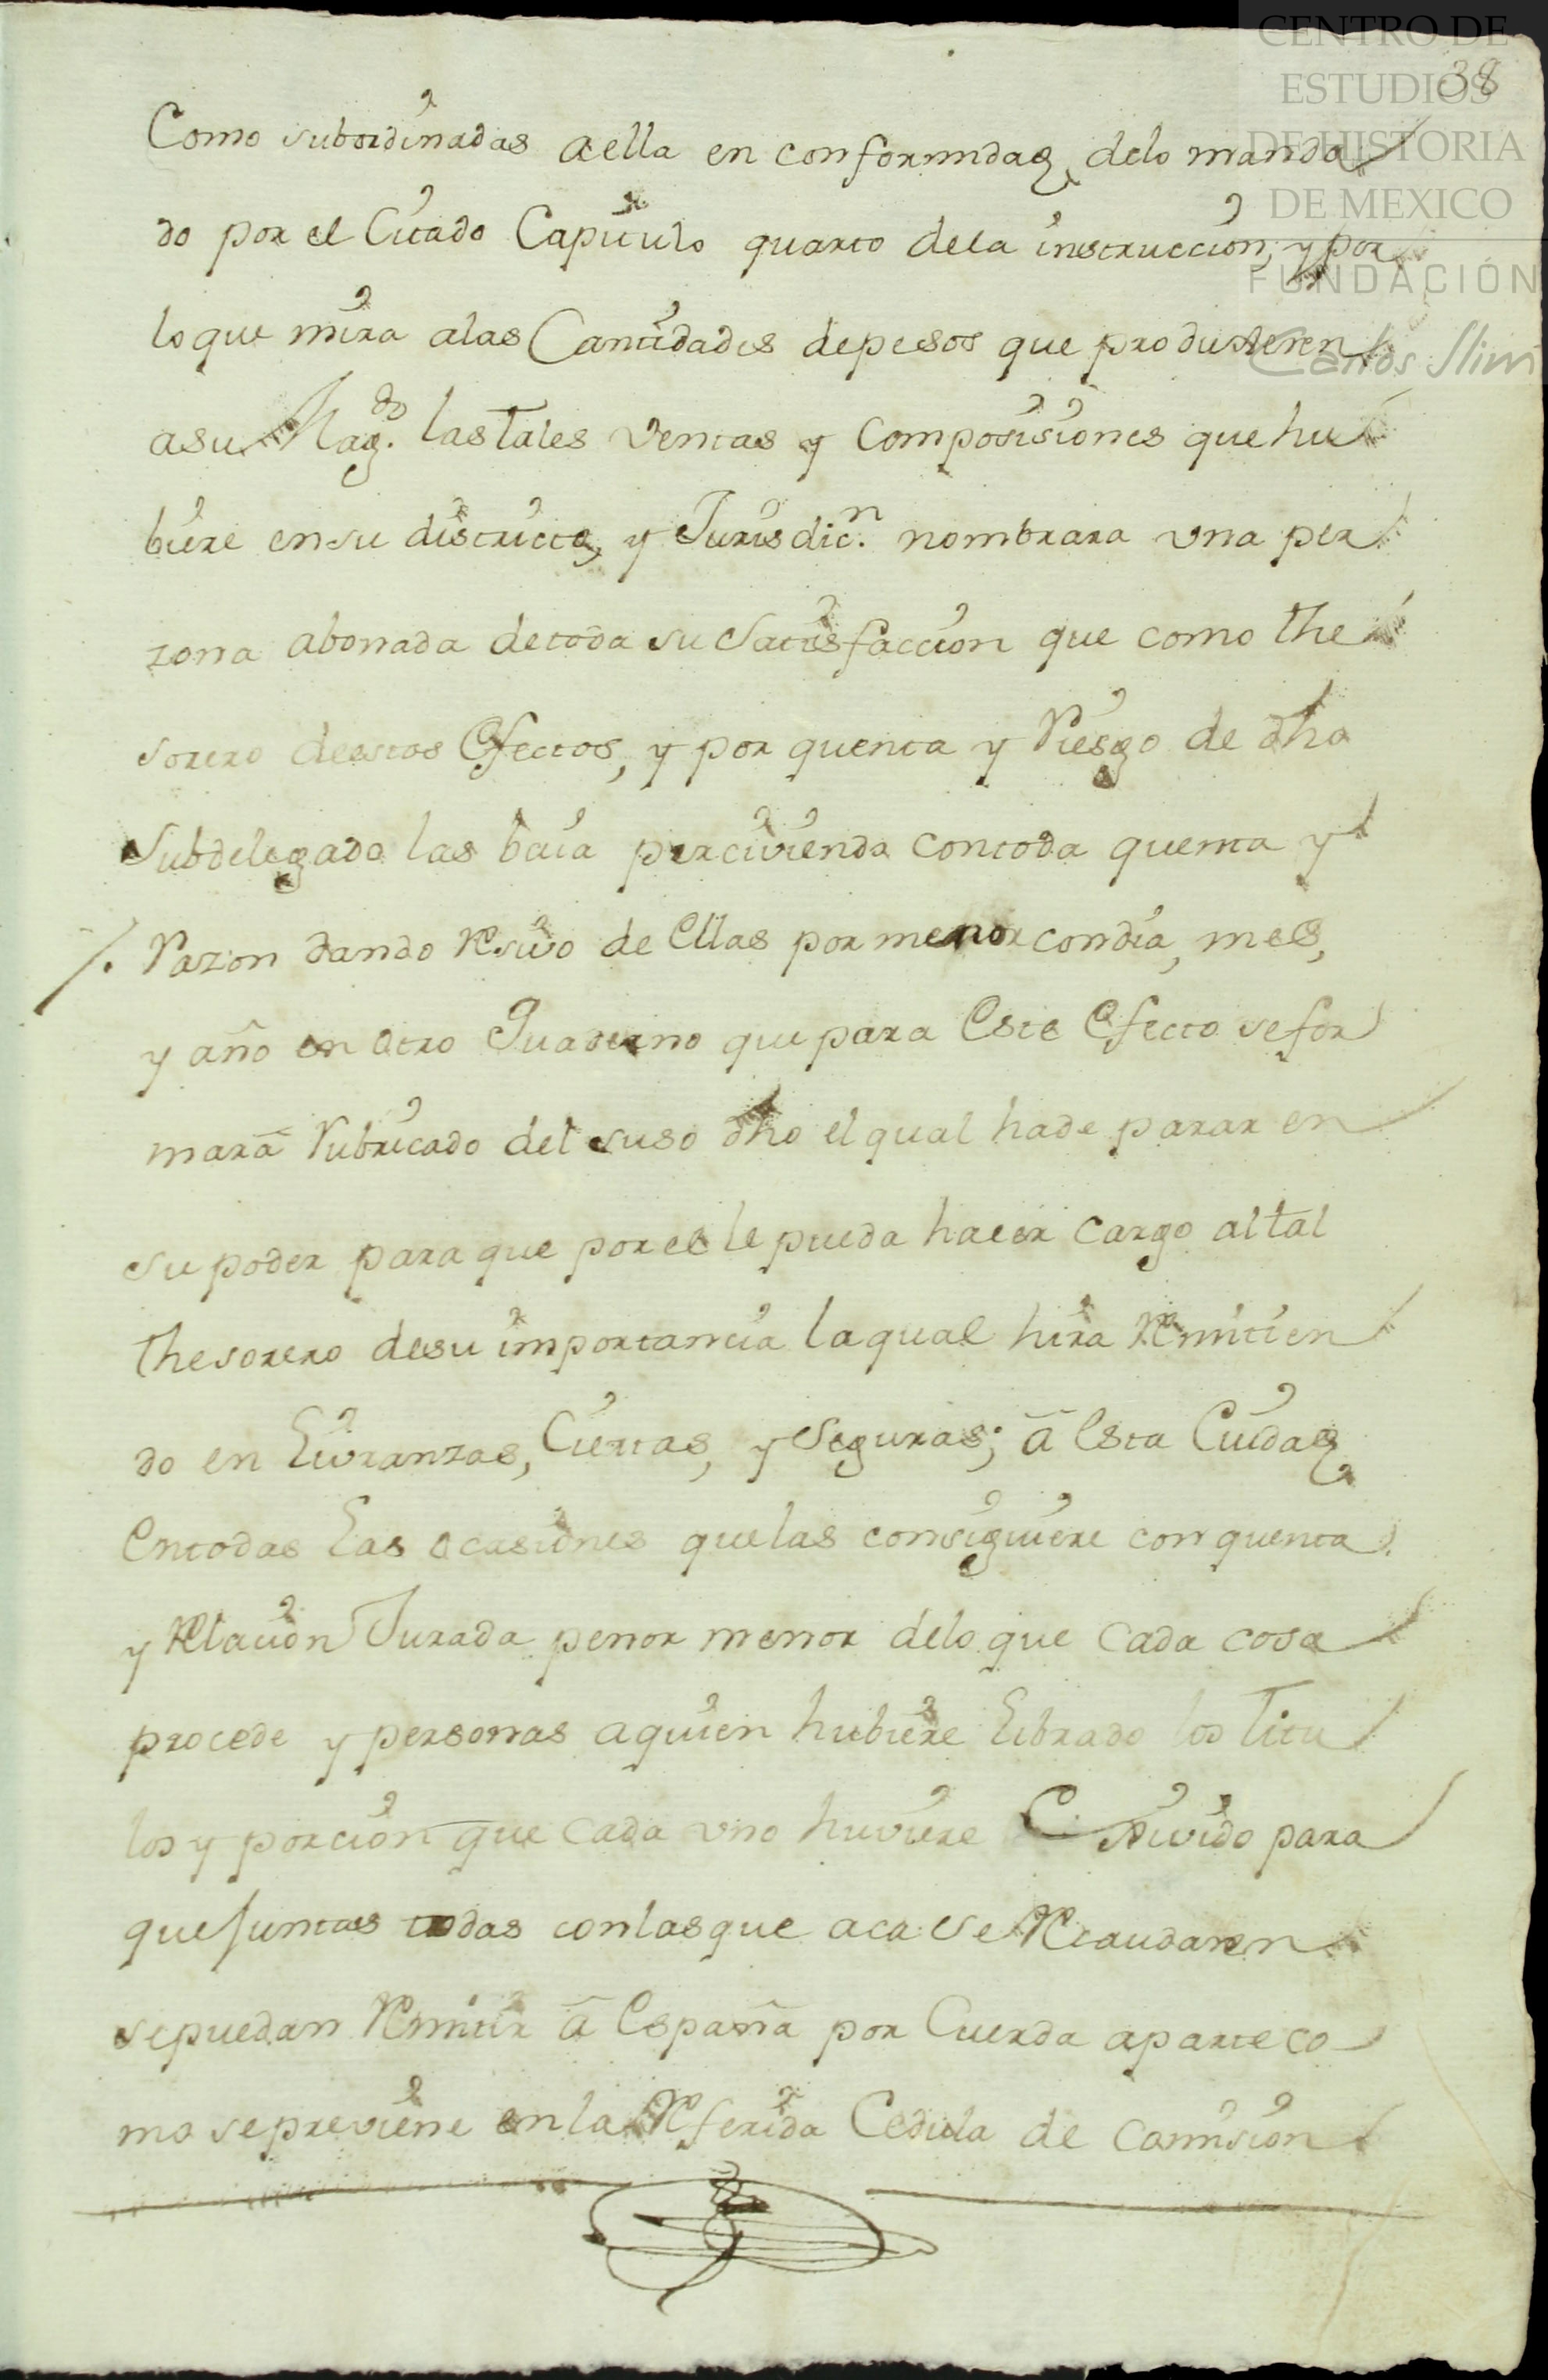 CENTRO DE
ESTUDIOS
DE HISTORIA
DE MEXICO
FUNDACIÓN
Carlos Slim
38
Como subordinadas aella en conformidad delo manda
do por el Citado Capitulo quarto dela instruccion, y por
lo que mira alas Cantidades depesos que produxeren
asu Magd. las Tales ventas y composisiones que hu
biere ensu districto, y Jurisdicn. nombrara vna per
zona abonada detoda su Satisfaccion que como the
sorero deestos Efectos, y por quenta y Riesgo de dho
Subdelegado las baia perciviendo contoda quenta y
/. Razon dando Resivo de Ellas por menor condia, mes,
y año en otro Quaderno que para Este Efecto sefor
mará Rubricado del suso dho el qual hade parar en
su poder para que por el le pueda hacer cargo al tal
thesorero desu importancia laqual hira Remitien
do en Livranzas, Ciertas, y Seguras; á Esta Ciudad
Entodas Las ocasiones quelas consiguiere con quenta
y Relacion Jurada penor menor delo que cada cosa
procede y personas aquien hubiere Librado los Titu
los y porcion que cada vno huviere Resivido para
que Juntas todas conlasque aca se Recaudaren
sepuedan Remitir á España por Cuerda aparte co
mo sepreviene en la Referida Cedula de Comision